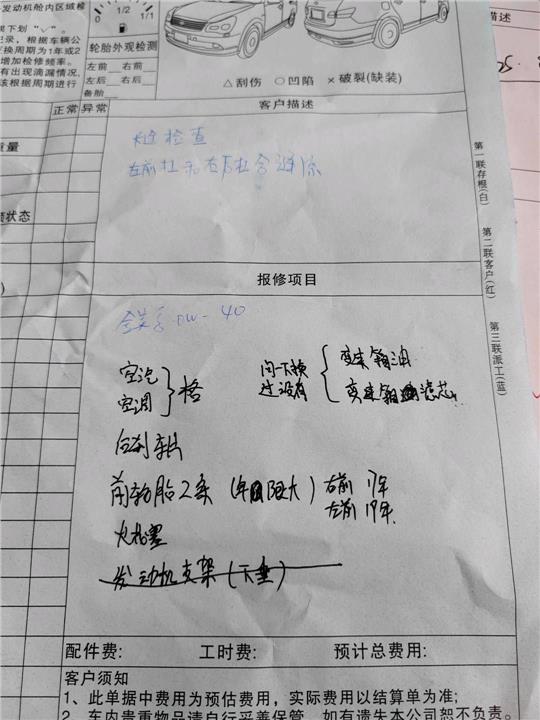 发动机舱内区域检
1/2
1/1
果下划"✓"。
记录，根据车辆公
换周期为1年或2
增加检修频率。
有出现滴漏情况，
该根据周期进行
轮胎外观检测
左前 右前
左后 右后
备胎
△刮伤 ○凹陷 ×破裂(缺装)
描述
正常 异常
客户描述
检查
左前
质量
状态
第一联存根(白)
第二联客户(红)
第三联派工(蓝)
报修项目
0W-40
空汽
空调
格
问下换
过没有
变速箱油
变速箱滤芯
后刹车片
前轮胎2条(年限大)
右前 17年
左前 19年
火花塞
发动机支架(下垂)
配件费: 工时费: 预计总费用:
客户须知
1、此单据中费用为预估费用，实际费用以结算单为准;
2、车内贵重物品请自行妥善保管，如有遗失本公司恕不负责。